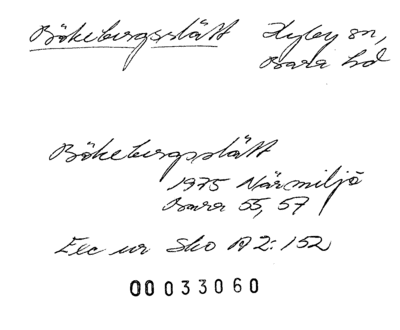 Bökebergsslätt Hyby sn,
Bara hd
Bökebergsslätt
1975 Närmiljö
Bara 55, 57
Exc ur Sko A 2:152
00033060